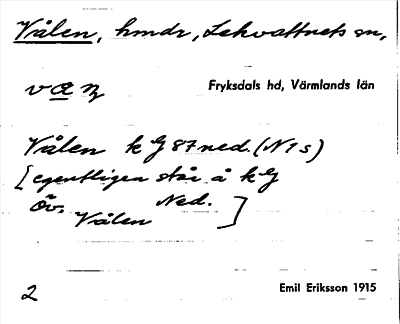 Vålen, hmdr, Lekvattnets sn,
Fryksdals hd, Värmlands län
Vålen k G 87 ned. (N 1 s)
[egentligen står å k G
Öv. Ned.
Vålen ]
2
Emil Eriksson 1915